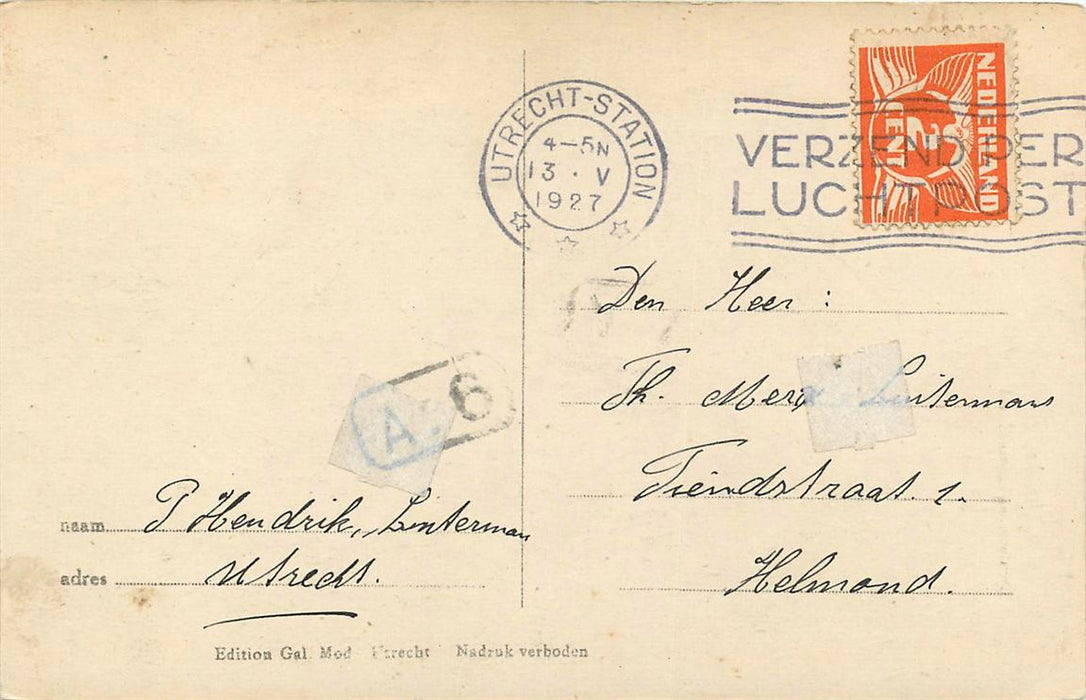 UTRECHT-STATION
4-5N
13 . V
1927
VERZEND PER
LUCHTPOST
NEDERLAND
2
CENT
Den Heer :
Th.
Tiendstraat. 1.
Helmond.
A. 6
naam P Hendrik, Linterman
adres Utrecht.
Edition Gal. Mod Utrecht Nadruk verboden